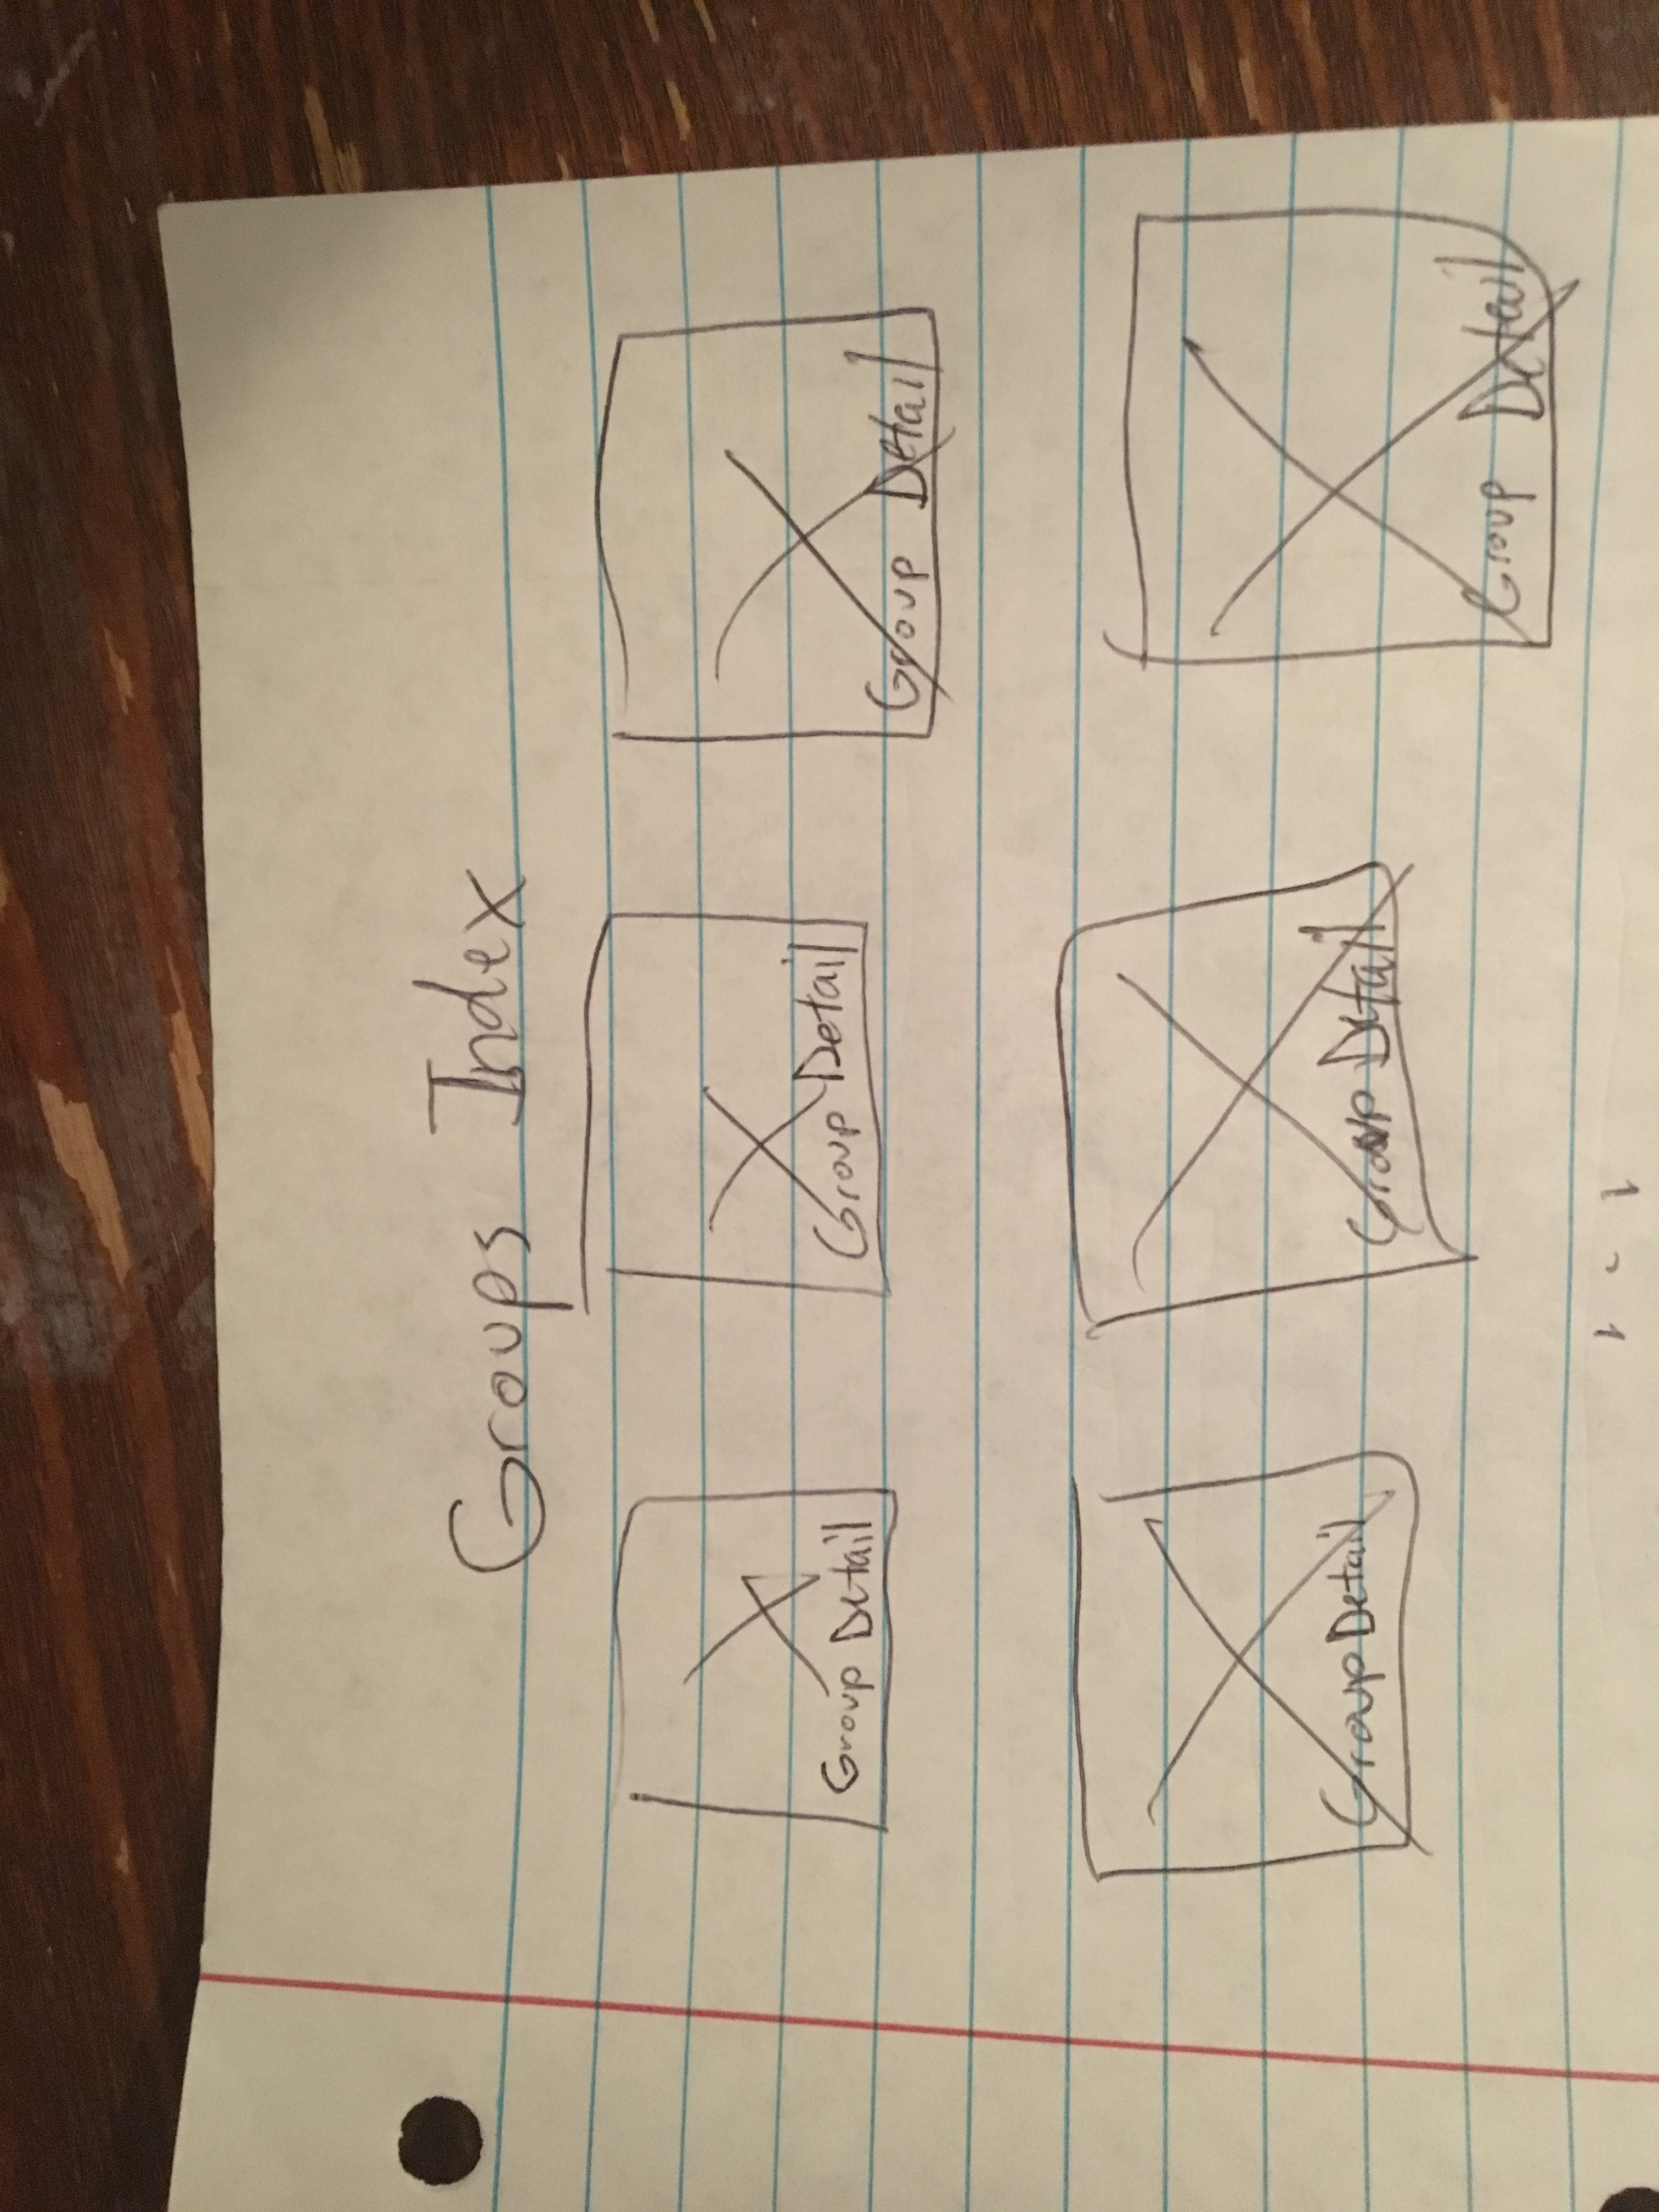 Groups Index
Group Detail Group Detail Group Detail
Group Detail Group Detail Group Detail